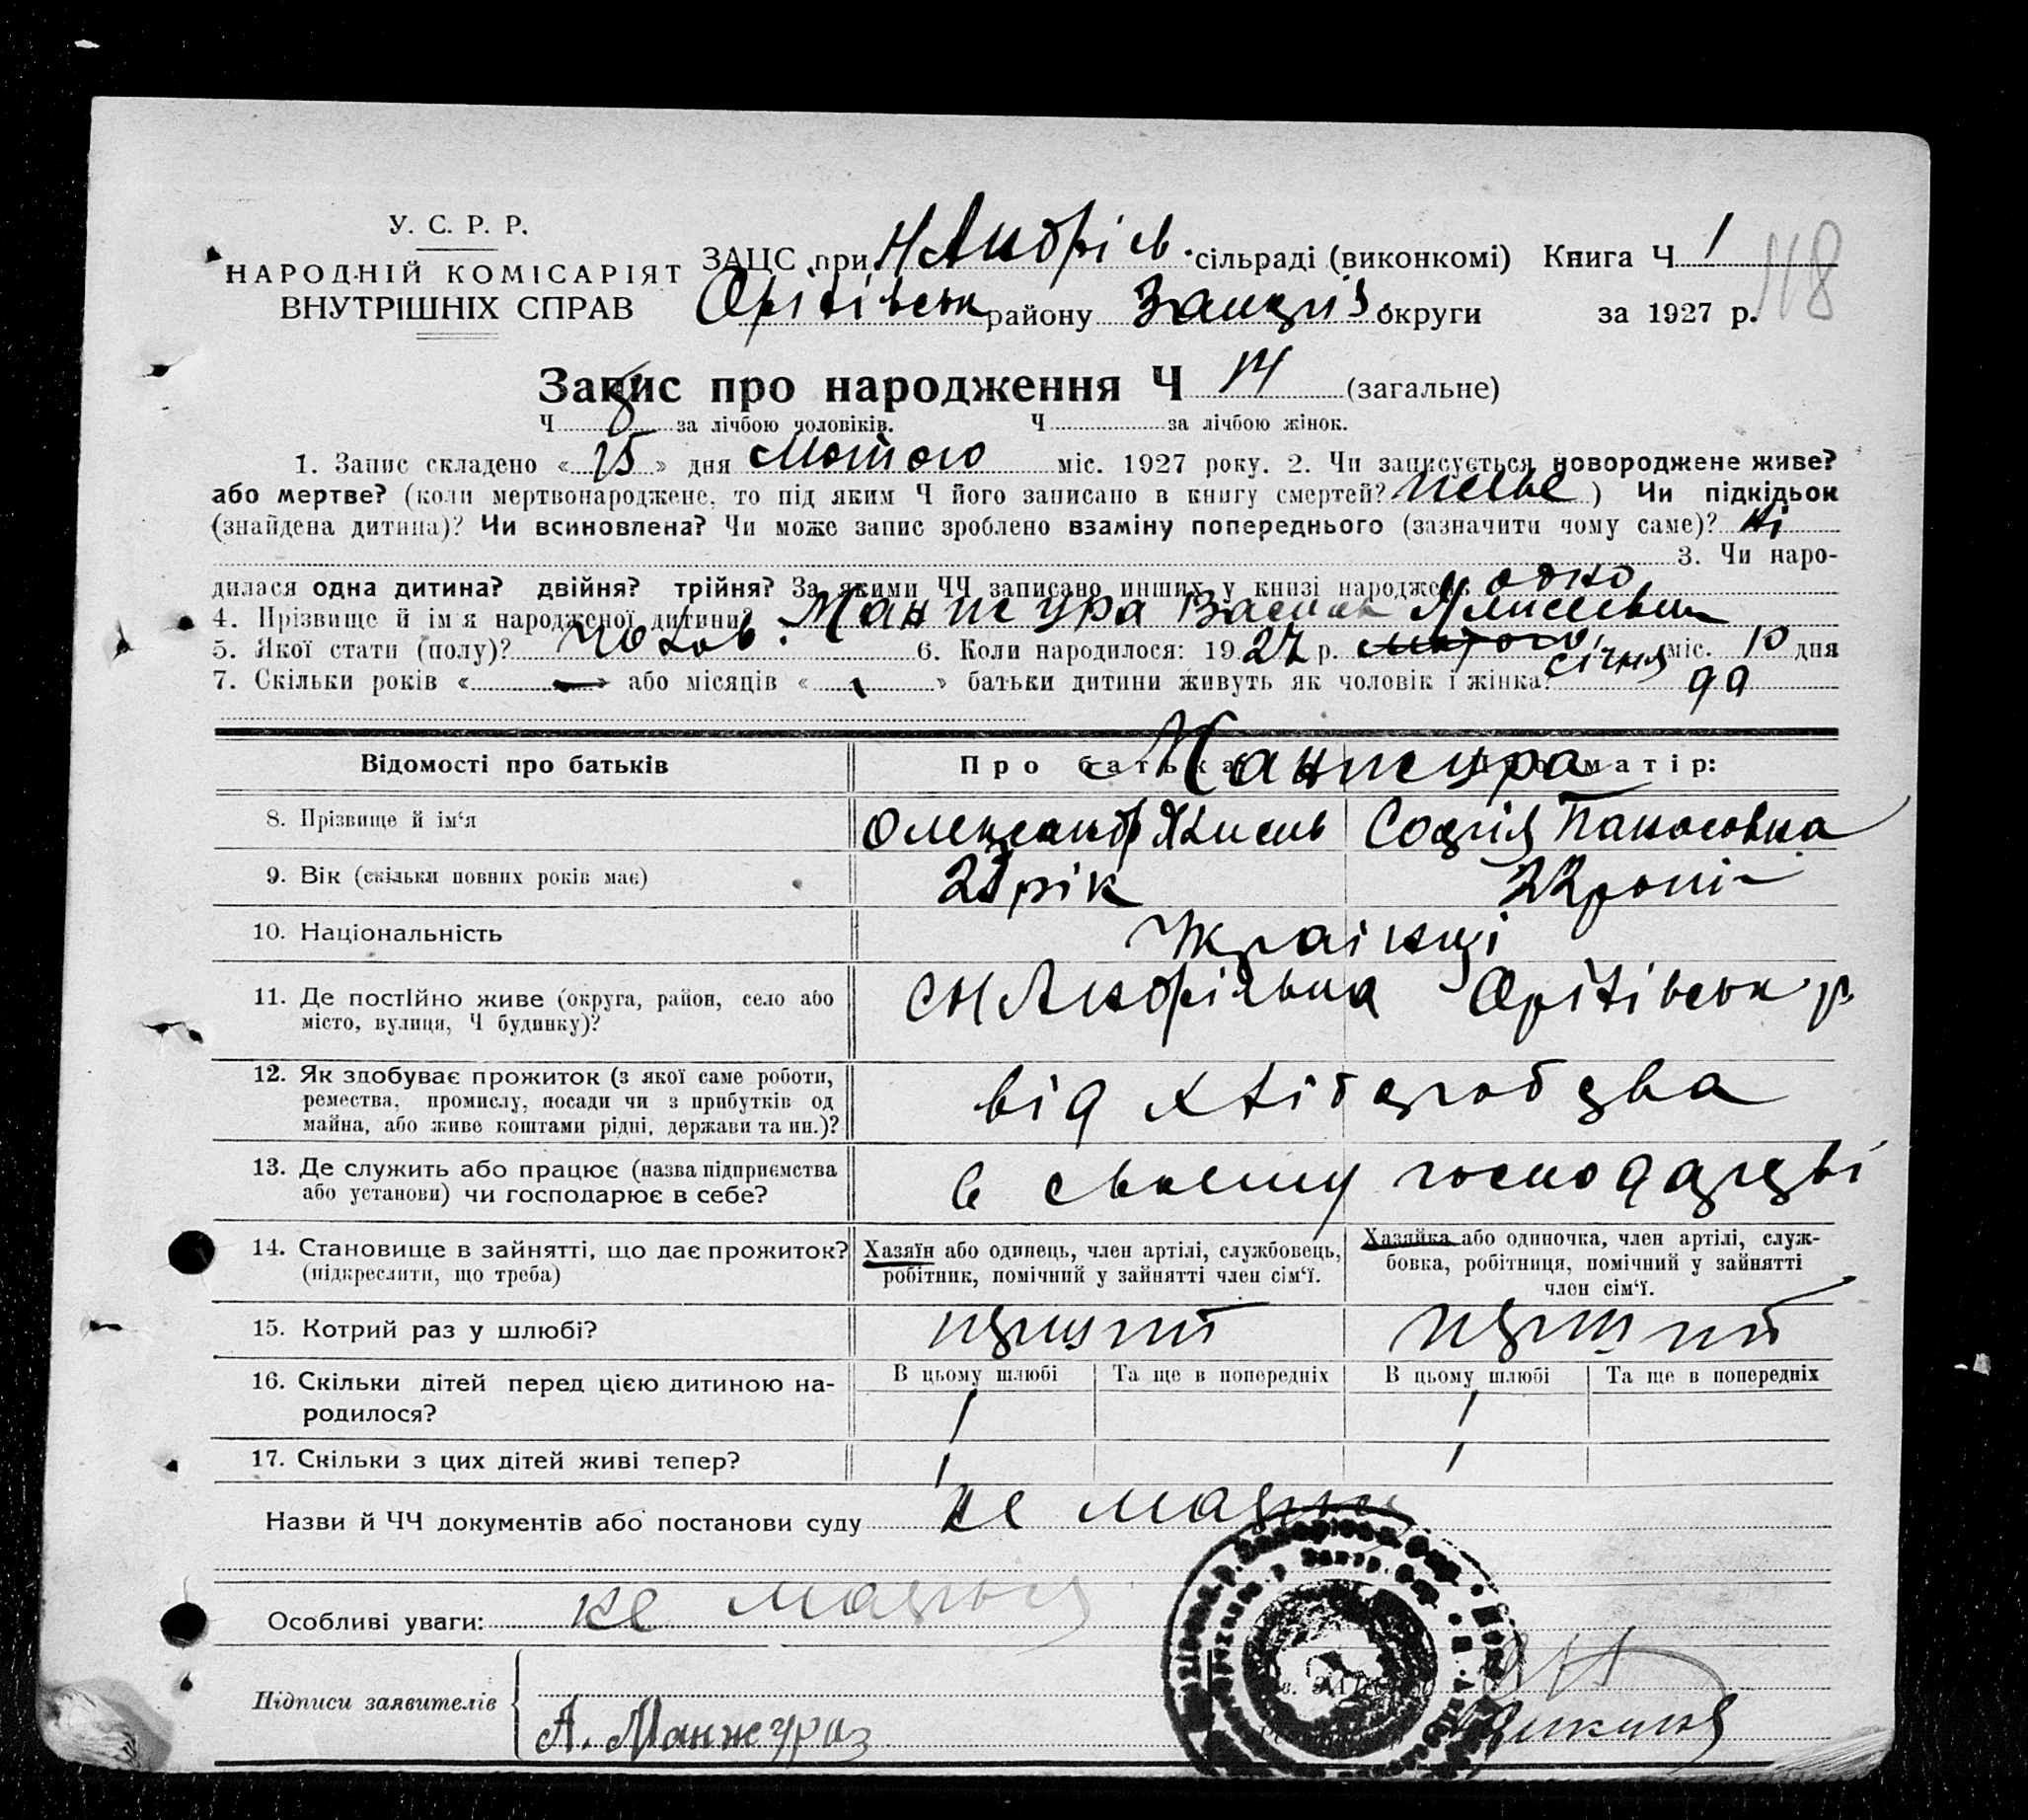 У. С. Р. Р.
НАРОДНІЙ КОМІСАРІЯТ
ВНУТРІШНІХ СПРАВ
ЗАЦС при Н Андрів. сільраді (виконкомі) Книга Ч 1
Оріхівськ району Запоріз. округи за 1927 р.
118
Запис про народження Ч 14 (загальне)
Ч 8 за лічбою чоловіків. Ч за лічбою жінок.
1. Запис складено « 25 » дня Лютого міс. 1927 року. 2. Чи записується новороджене живе?
або мертве? (коли мертвонароджене, то під яким Ч його записано в книгу смертей? живе ) Чи підкідьок
(знайдена дитина)? Чи всиновлена? Чи може запис зроблено взаміну попереднього (зазначити чому саме)? ні
3. Чи наро-
дилася одна дитина? двійня? трійня? За якими ЧЧ записано инших у книзі народжень одно
4. Прізвище й ім'я народженої дитини? Манжура Василь
5. Якої стати (полу)? чолов. 6. Коли народилося: 1927 р. лютого січня міс. 10 дня
7. Скільки років « — » або місяців « » батьки дитини живуть як чоловік і жінка? да
Відомості про батьків Про батька Про матір:
Манжура
8. Прізвище й ім'я Олександр Софія Панасовна
9. Вік (скільки повних років має) 21 рік 22 роки
10. Національність Українці
11. Де постійно живе (округа, район, село або
місто, вулиця, Ч будинку)? С Н Андрівка Оріхівськ р.
12. Як здобуває прожиток (з якої саме роботи,
ремества, промислу, посади чи з прибутків од
майна, або живе коштами рідні, держави та ин.)? від хліборобства
13. Де служить або працює (назва підприємства
або установи) чи господарює в себе? в своєму господарстві
14. Становище в зайнятті, що дає прожиток?
(підкреслити, що треба)
Хазяїн або одинець, член артілі, службовець,
робітник, помічний у зайнятті член сім'ї.
Хазяйка або одиночка, член артілі, служ-
бовка, робітниця, помічний у зайнятті
член сім'ї.
15. Котрий раз у шлюбі? перший перший
16. Скільки дітей перед цією дитиною на-
родилося?
В цьому шлюбі Та ще в попередніх В цьому шлюбі Та ще в попередніх
1 1
17. Скільки з цих дітей живі тепер? 1 1
Назви й ЧЧ документів або постанови суду не мається
Особливі уваги: не мається
Підписи заявителів
А. Манжура